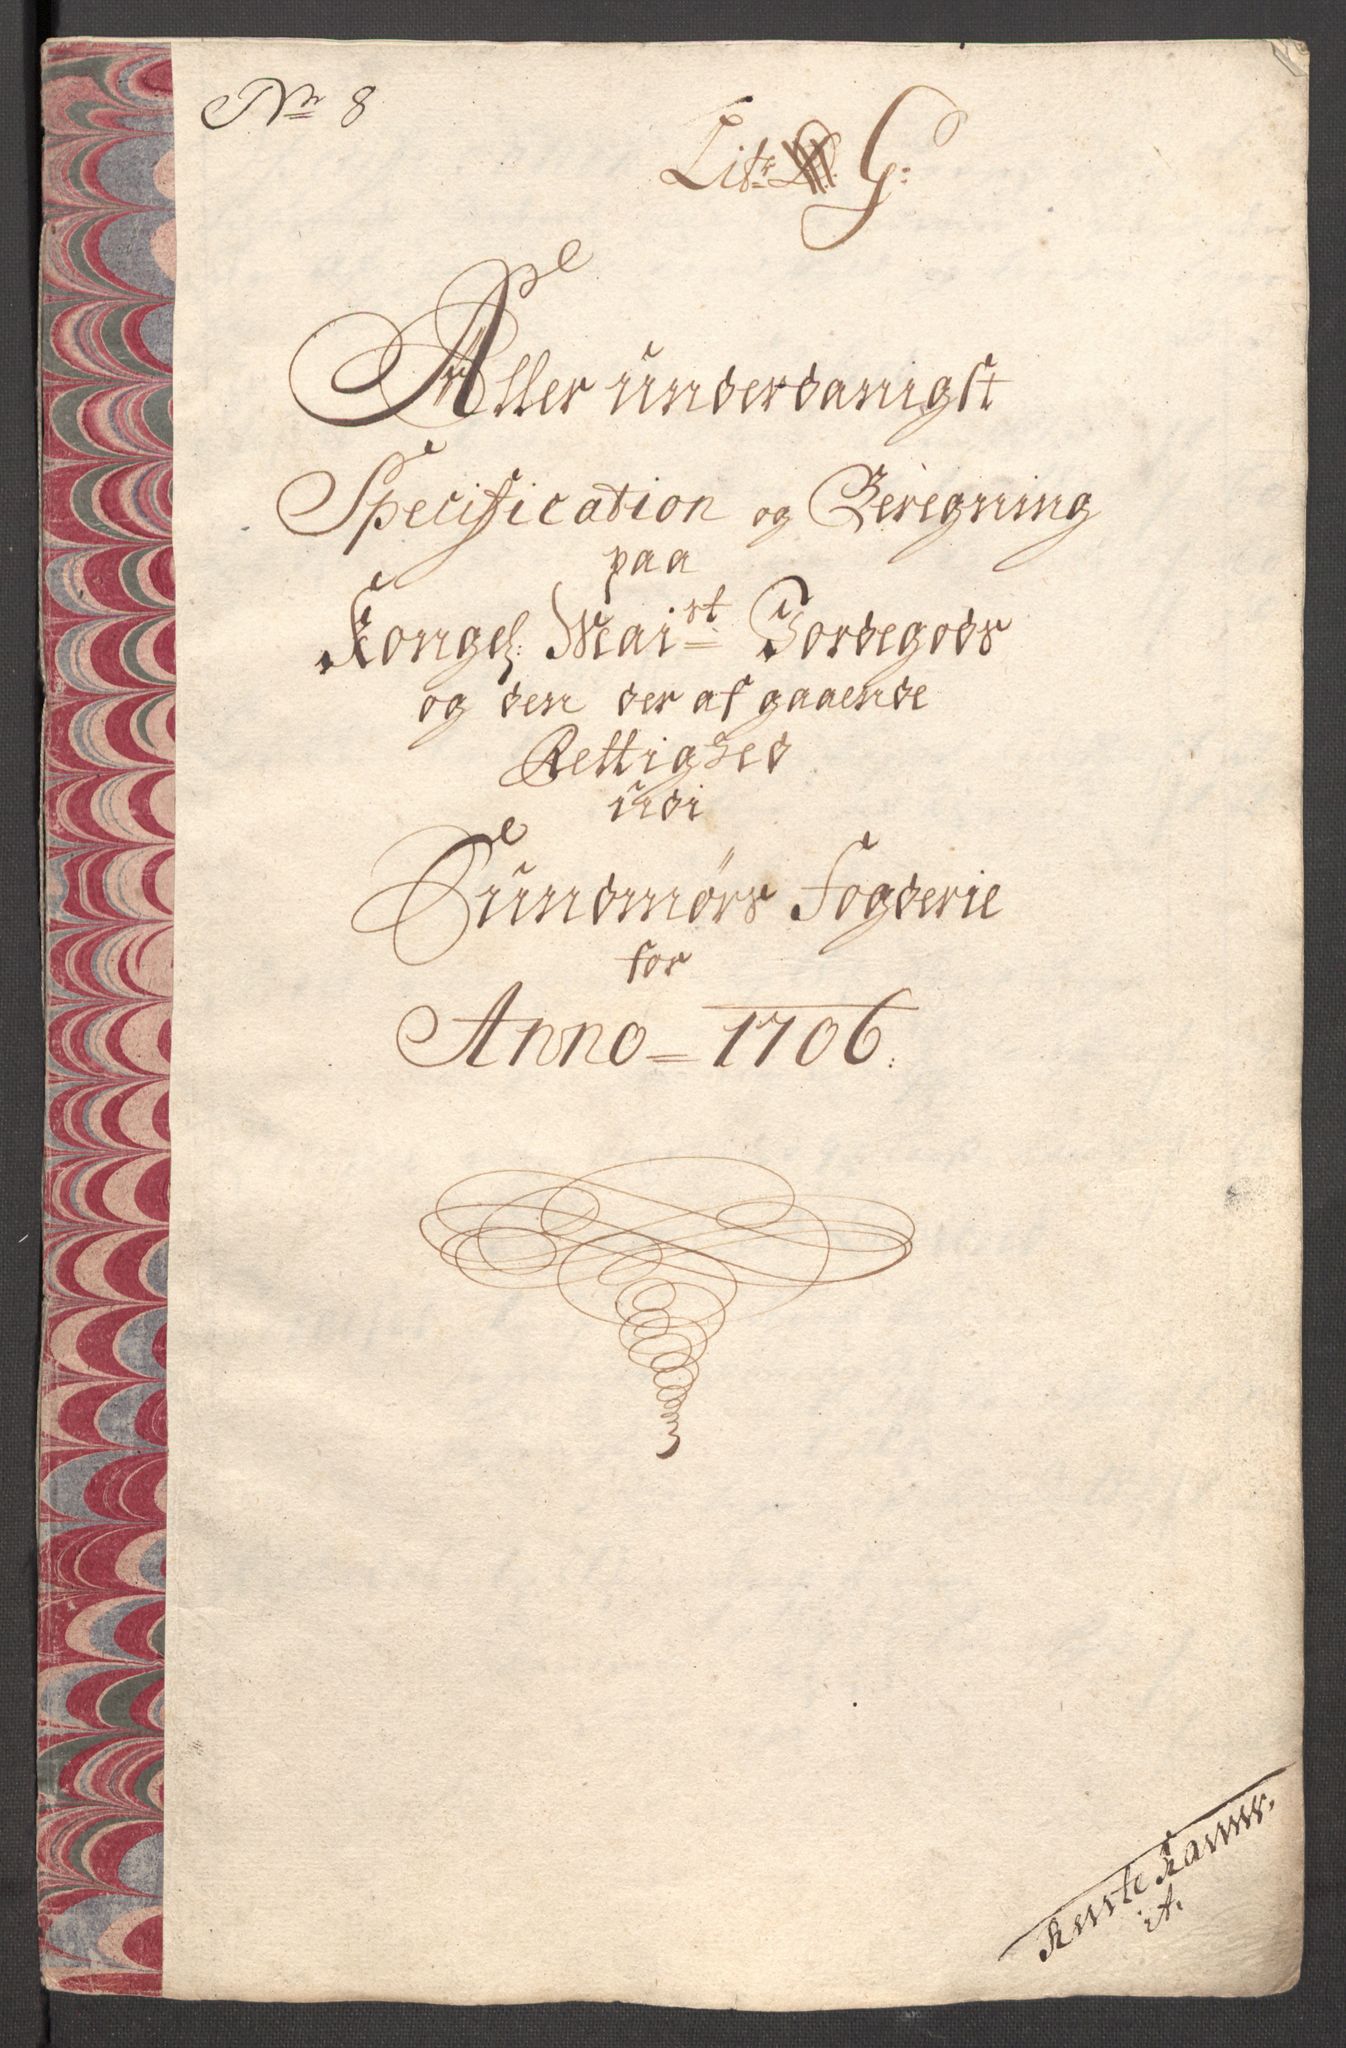 No 8
Litr G:
Aller underdanigst
Specification og Beregning
paa
Kongel: Maist Jordegods
og den der af gaaende
Rettighed
udi
Sundmørs Fogderie
for
Anno 1706.
Rente Kammer.
A.